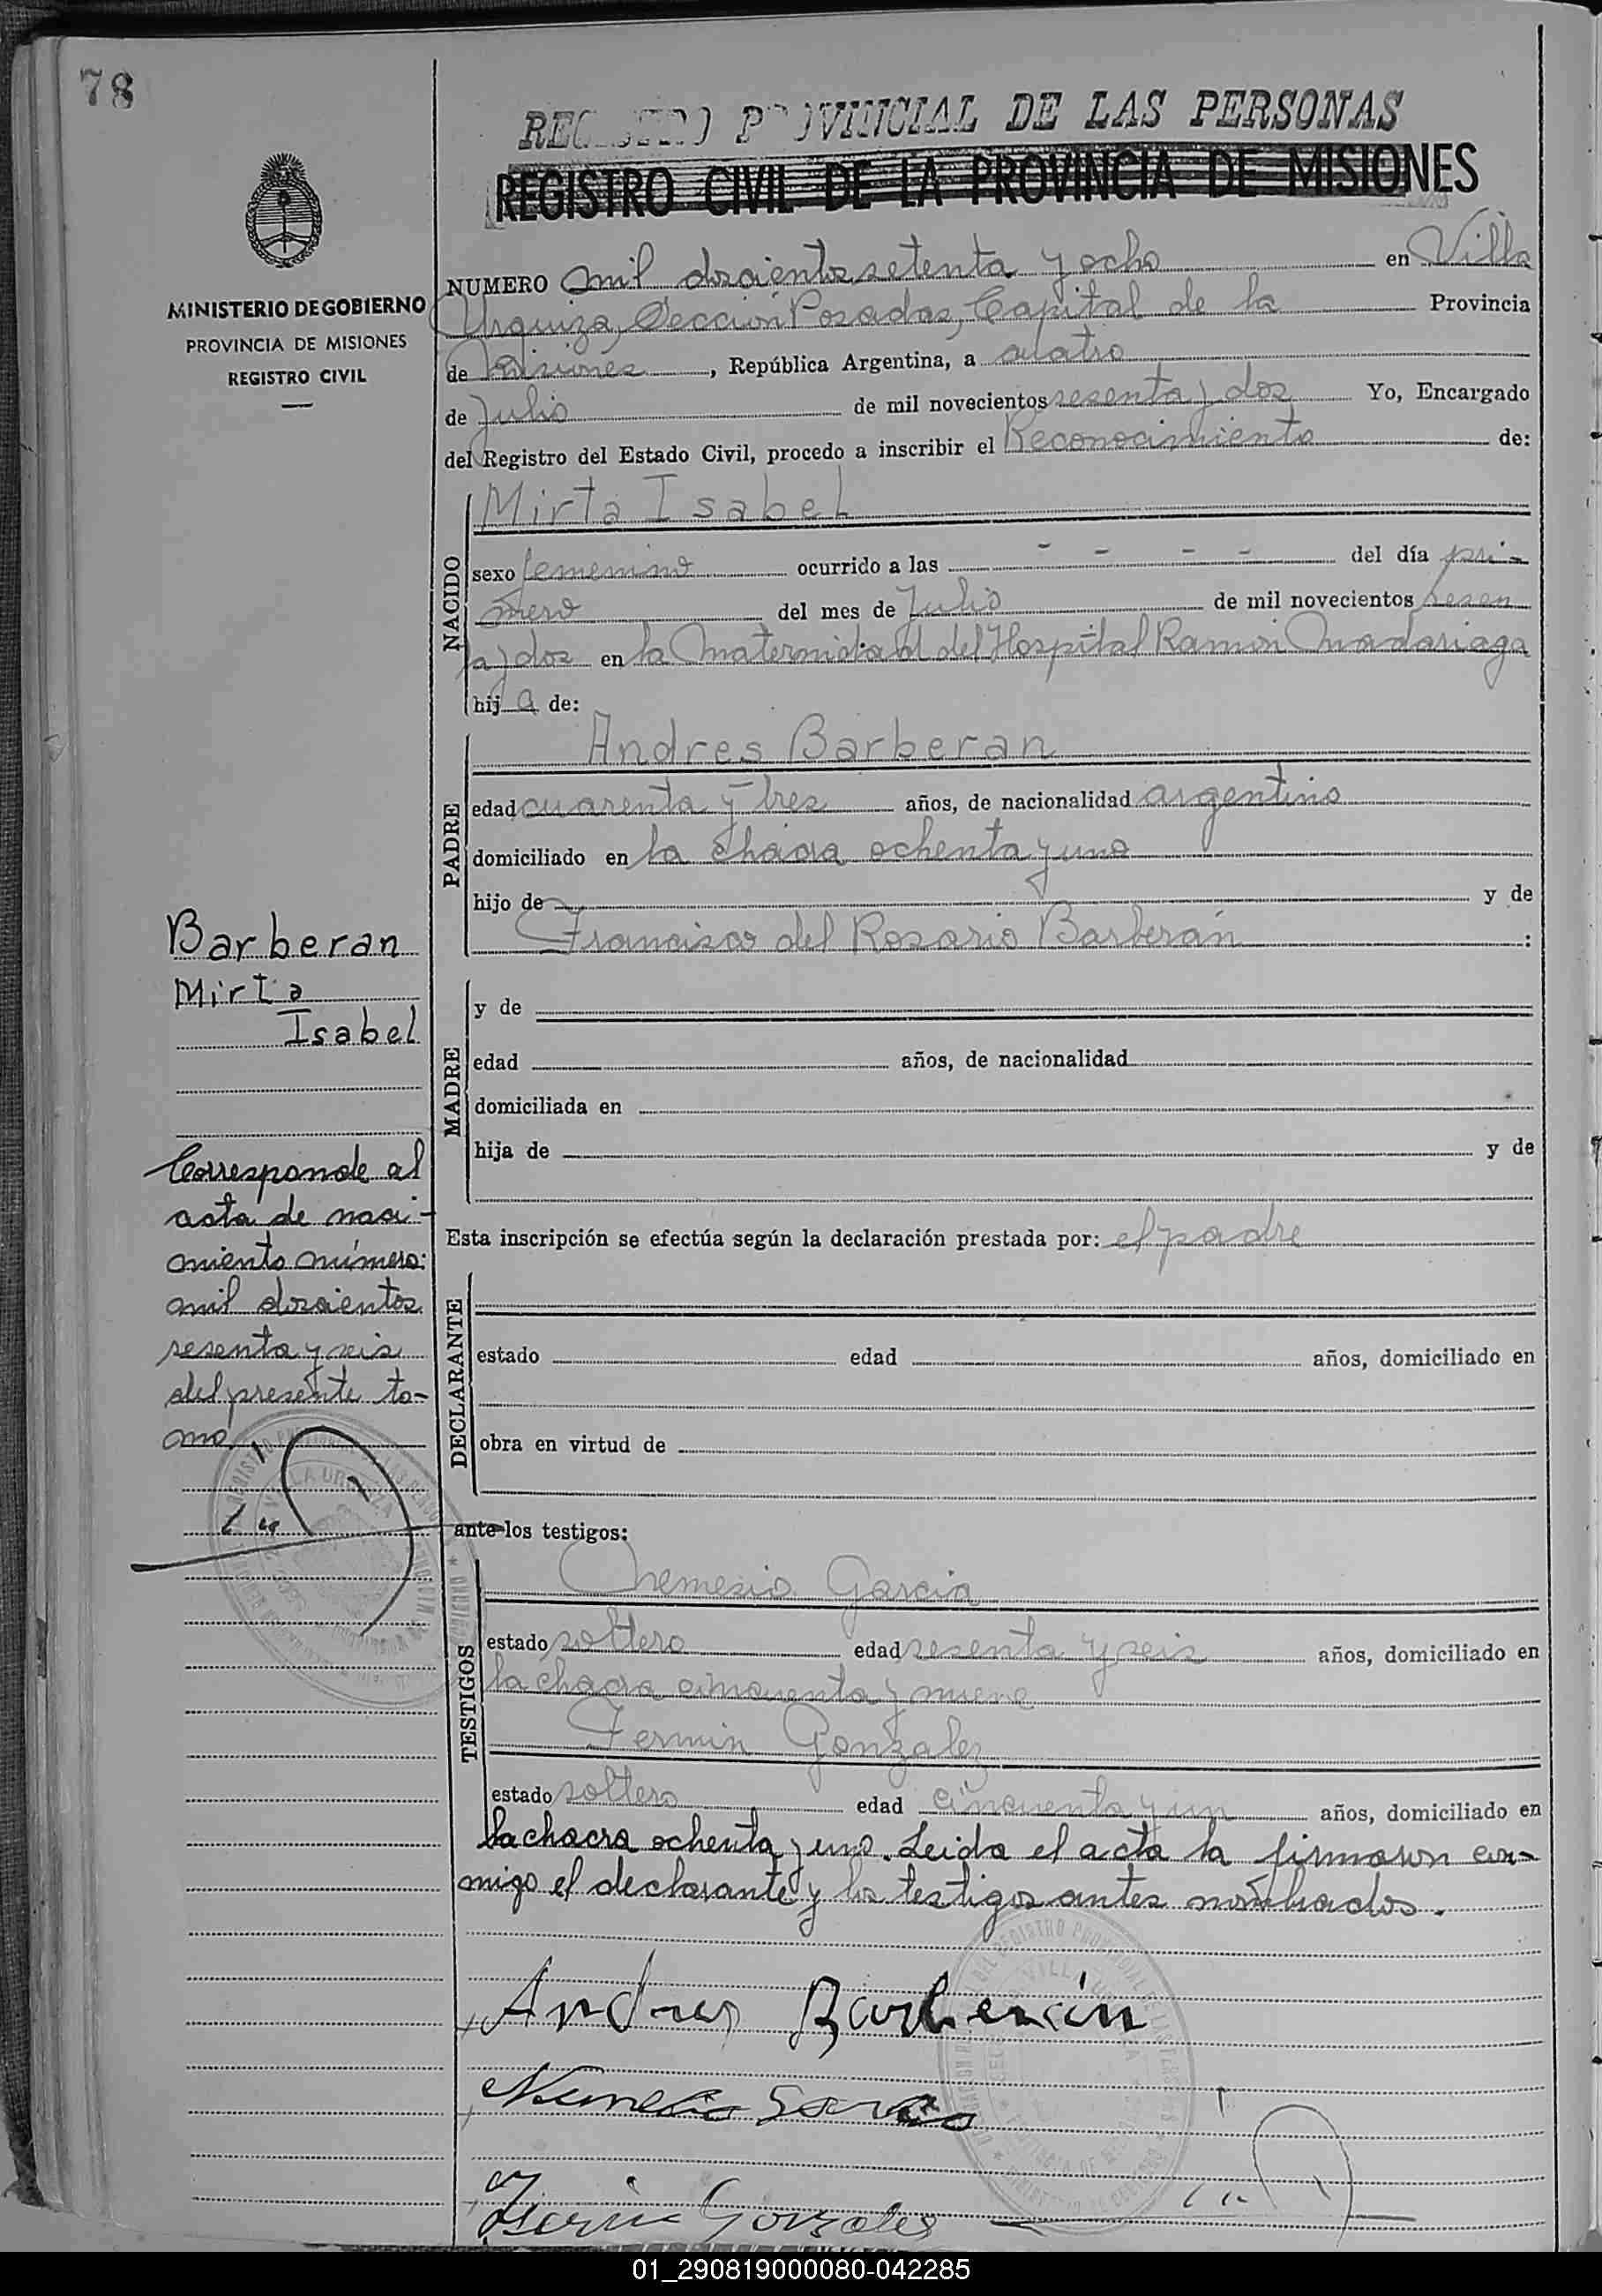 78
REGISTRO PROVINCIAL DE LAS PERSONAS
REGISTRO CIVIL DE LA PROVINCIA DE MISIONES
MINISTERIO DE GOBIERNO
PROVINCIA DE MISIONES
REGISTRO CIVIL
NUMERO mil doscientos setenta y ocho en Villa
Urquiza, Sección Posadas, Capital de la Provincia
de Misiones, República Argentina, a cuatro
de Julio de mil novecientos sesenta y dos Yo, Encargado
del Registro del Estado Civil, procedo a inscribir el Reconocimiento de:
NACIDO
Mirta Isabel
sexo femenino ocurrido a las - - - - del día pri-
mero del mes de Julio de mil novecientos sesen
ta y dos en la Maternidad del Hospital Ramón Madariaga
hija de:
PADRE
Andres Barberan
edad cuarenta y tres años, de nacionalidad argentino
domiciliado en la chacra ochenta y uno
hijo de y de
Francisca del Rosario Barberán :
MADRE
y de
edad años, de nacionalidad
domiciliada en
hija de y de
Esta inscripción se efectúa según la declaración prestada por: el padre
DECLARANTE
estado edad años, domiciliado en
obra en virtud de
ante los testigos:
TESTIGOS
Nemesio Garcia
estado soltero edad sesenta y seis años, domiciliado en
la chacra cincuenta y nueve
Fermin Gonzalez
estado soltero edad cincuenta y un años, domiciliado en
la chacra ochenta y uno. Leida el acta la firmaron con-
migo el declarante y los testigos antes nombrados.
Andres Barberán
Nemesio Garcia
Fermin Gonzales
Barberan
Mirta
Isabel
Corresponde al
acta de naci-
miento número:
mil doscientos
sesenta y seis
del presente to-
mo.
01_290819000080-042285